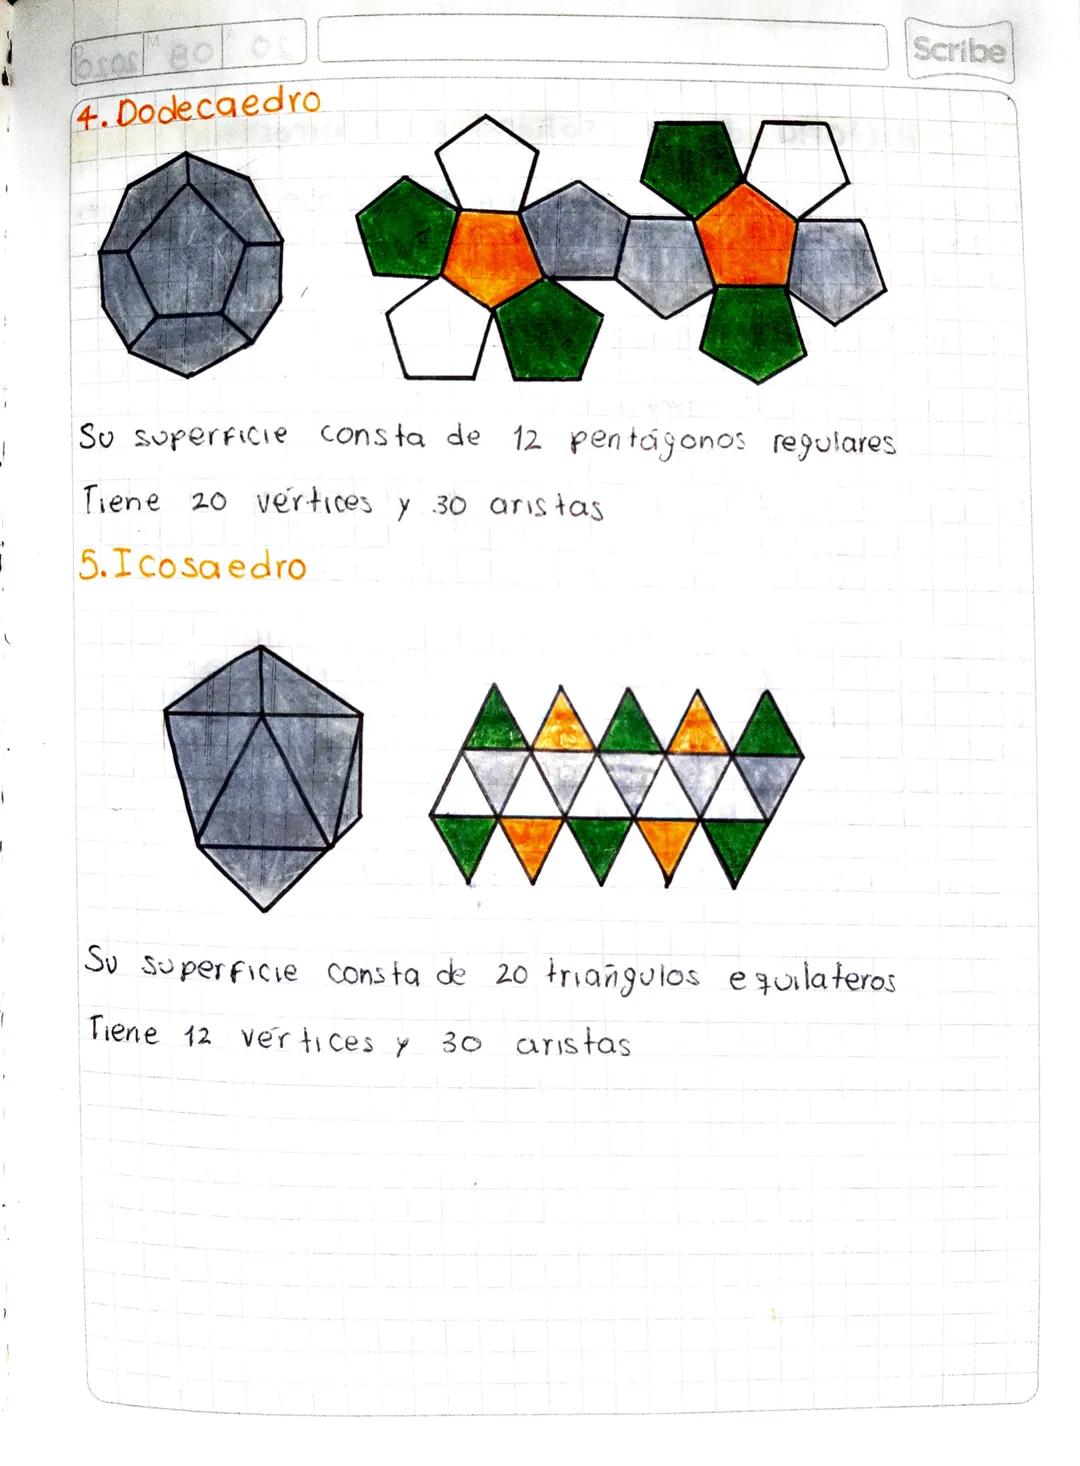 Scribe
4. Dodecaedro
Su superficie consta de 12 pentágonos regulares
Tiene 20 vértices y 30 aristas
5. Icosaedro
Su superficie consta de 20 triángulos equilateros
Tiene 12 vértices y 30 aristas